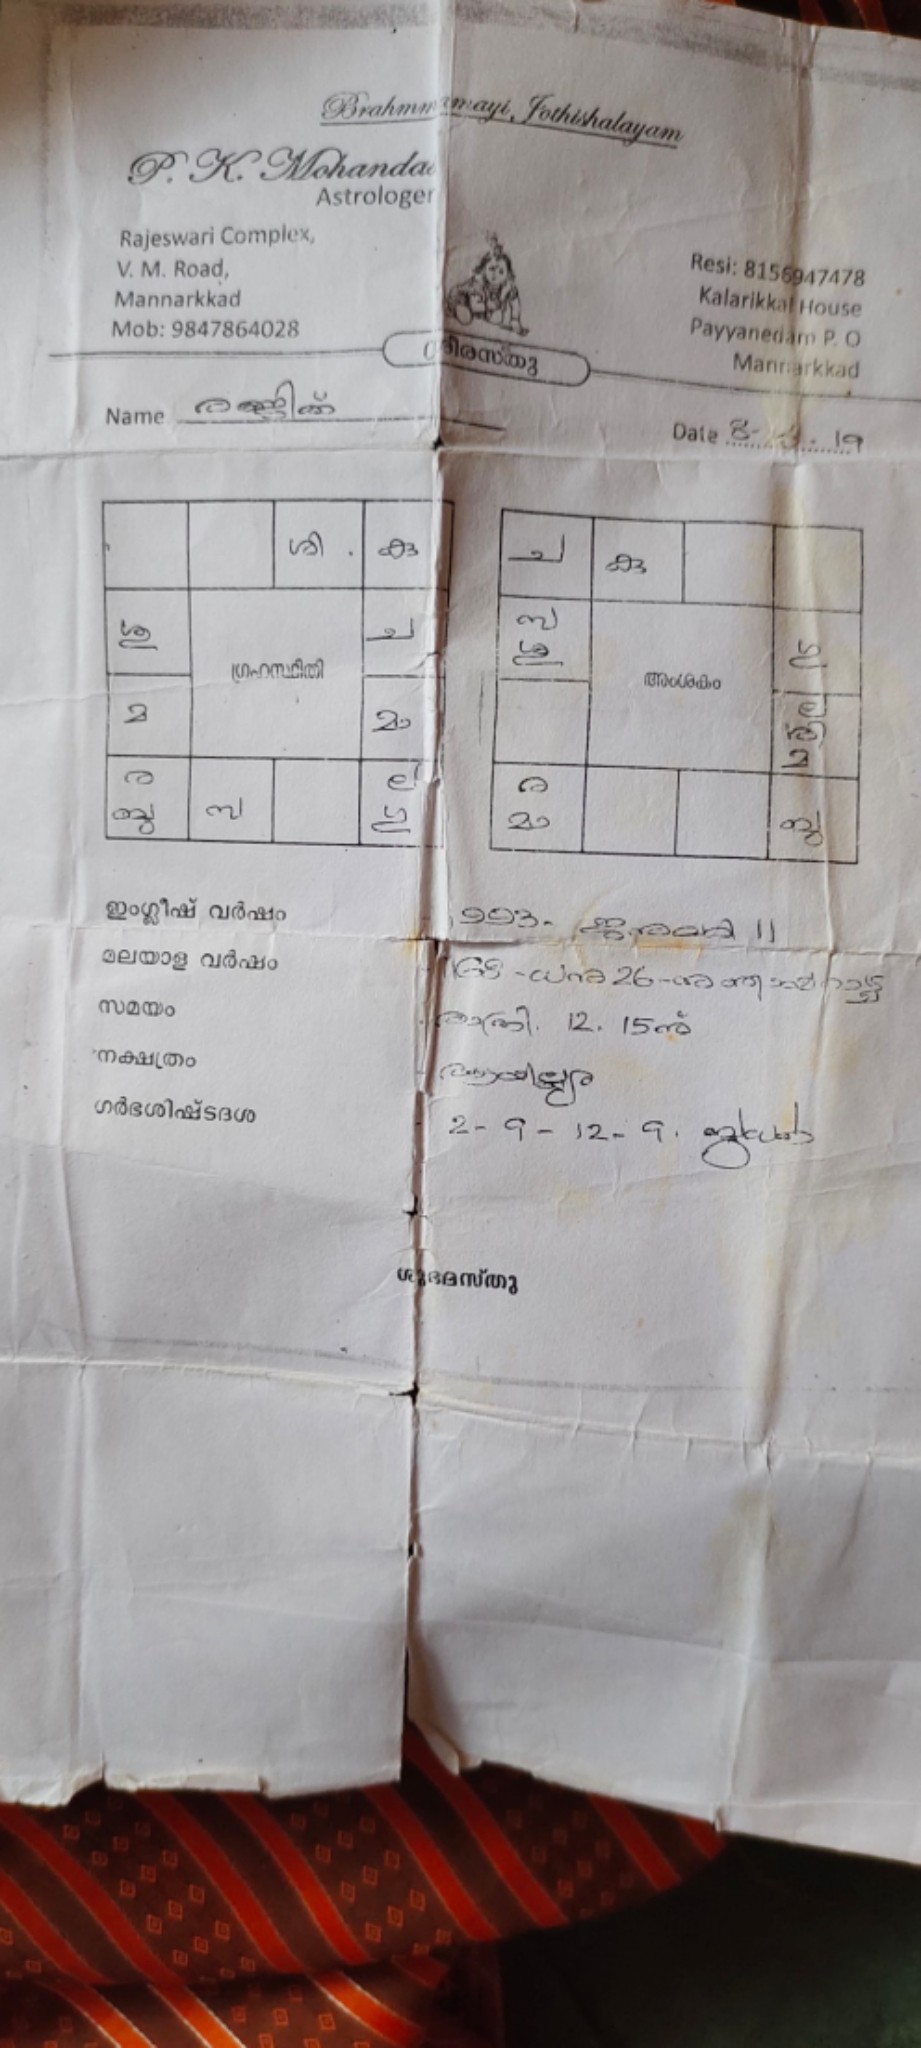 Brahmmamayi Jothishalayam
P. K. Mohandas
Astrologer
Rajeswari Complex,
V. M. Road,
Mannarkkad
Mob: 9847864028
Resi: 8156947478
Kalarikkal House
Payyanedam P. O
Mannarkkad
ശ്രീരസ്തു
Name
Date 19
ശി കു
ച
മ ഗ്രഹസ്ഥിതി മാ
ര ല
ബു സ ഗു
ച കു
സ
ശു ഗു
അംശകം ല
മ
ര
മാ ബു
ഇംഗ്ലീഷ് വർഷം 1993- ജനുവരി 11
മലയാള വർഷം ധനു 26-
സമയം രാത്രി. 12. 15ന്
നക്ഷത്രം ആയില്യം
ഗർഭശിഷ്ടദശ 2- 9 - 12- 9. ബുധൻ
ശുഭമസ്തു